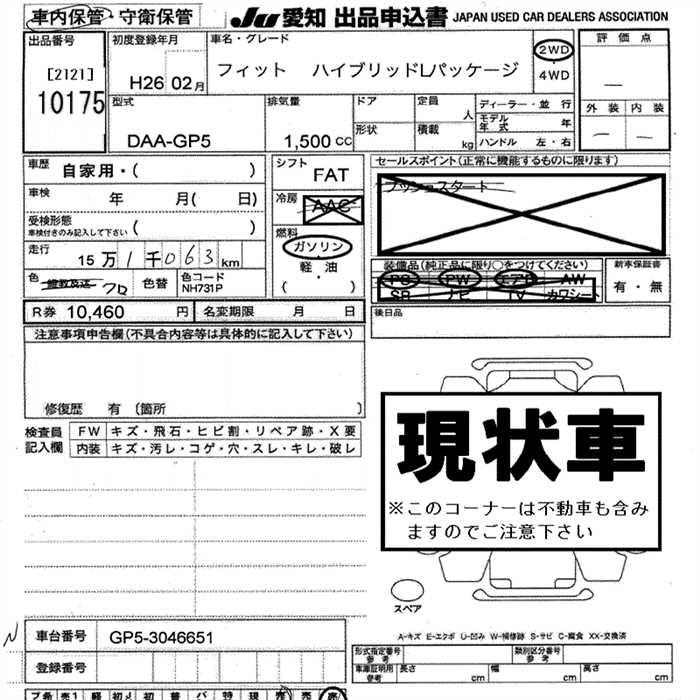 車内保管・守衛保管 JU 愛知 出品申込書 JAPAN USED CAR DEALERS ASSOCIATION
出品番号 初度登録年月 車名・グレード 評価点
[2121] H26 02月 フィット ハイブリッドLパッケージ 2WD
10175 4WD —
型式 排気量 ドア 定員 人 ディーラー・並行 外装 内装
DAA-GP5 1,500 cc 形状 積載 kg モデル年式 年 — —
ハンドル 左・右
車歴 自家用・( ) シフト FAT セールスポイント(正常に機能するものに限ります)
車検 年 月( 日) 冷房 AAC プッシュスタート
受検形態 車検付きのみ記入して下さい ( ) 燃料 ガソリン
走行 15万1千063km 軽・油 装備品(純正品に限り○をつけてください) 新車保証書
色 クロ 色替 色コード NH731P ( ) PS PW エアB AW 有・無
SR ナビ TV カワシート
R券 10,460 円 名変期限 月 日 後日品
注意事項申告欄(不具合内容等は具体的に記入して下さい)
修復歴 有 (箇所 )
検査員記入欄 FW キズ・飛石・ヒビ割・リペア跡・X要
内装 キズ・汚レ・コゲ・穴・スレ・キレ・破レ
現状車
※このコーナーは不動車も含み
ますのでご注意下さい
スペア
A-キズ E-エクボ U-凹み W-補修跡 S-サビ C-腐食 XX-交換済
N 車台番号 GP5-3046651
登録番号
形式指定番号 参考 類別区分番号 参考
車庫証明用 参考 長さ cm 幅 cm 高さ cm